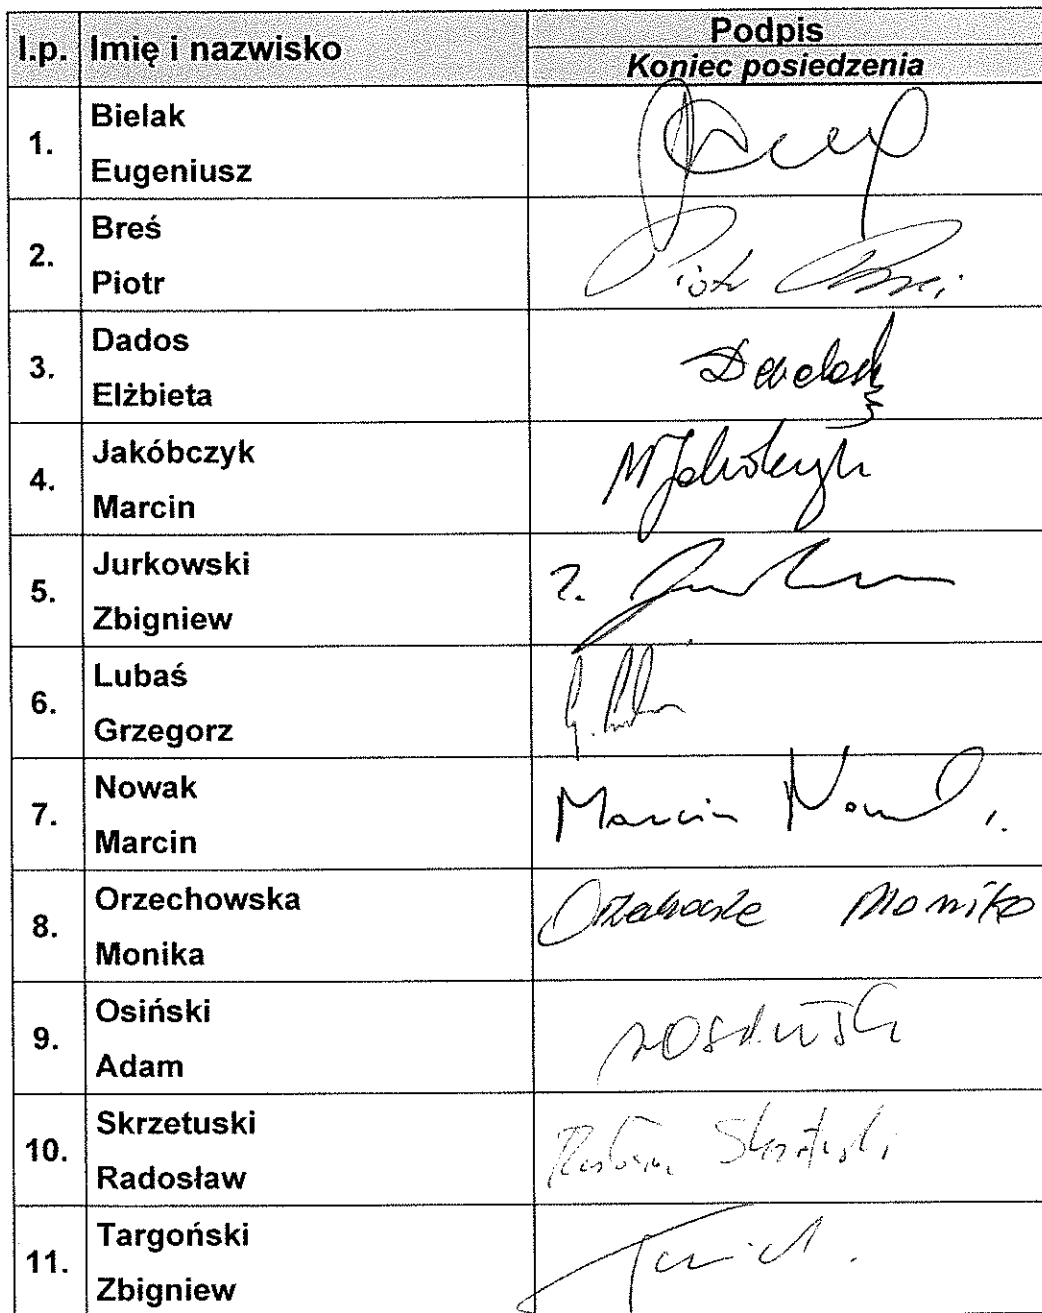 l.p. Imię i nazwisko Podpis
Koniec posiedzenia
1. Bielak
Eugeniusz
2. Breś
Piotr
Piotr
3. Dados
Elżbieta
4. Jakóbczyk
Marcin
M Jakóbczyk
5. Jurkowski
Zbigniew
6. Lubaś
Grzegorz
7. Nowak
Marcin
Marcin Nowak
8. Orzechowska
Monika
Monika
9. Osiński
Adam
10. Skrzetuski
Radosław
Skrzetuski
11. Targoński
Zbigniew